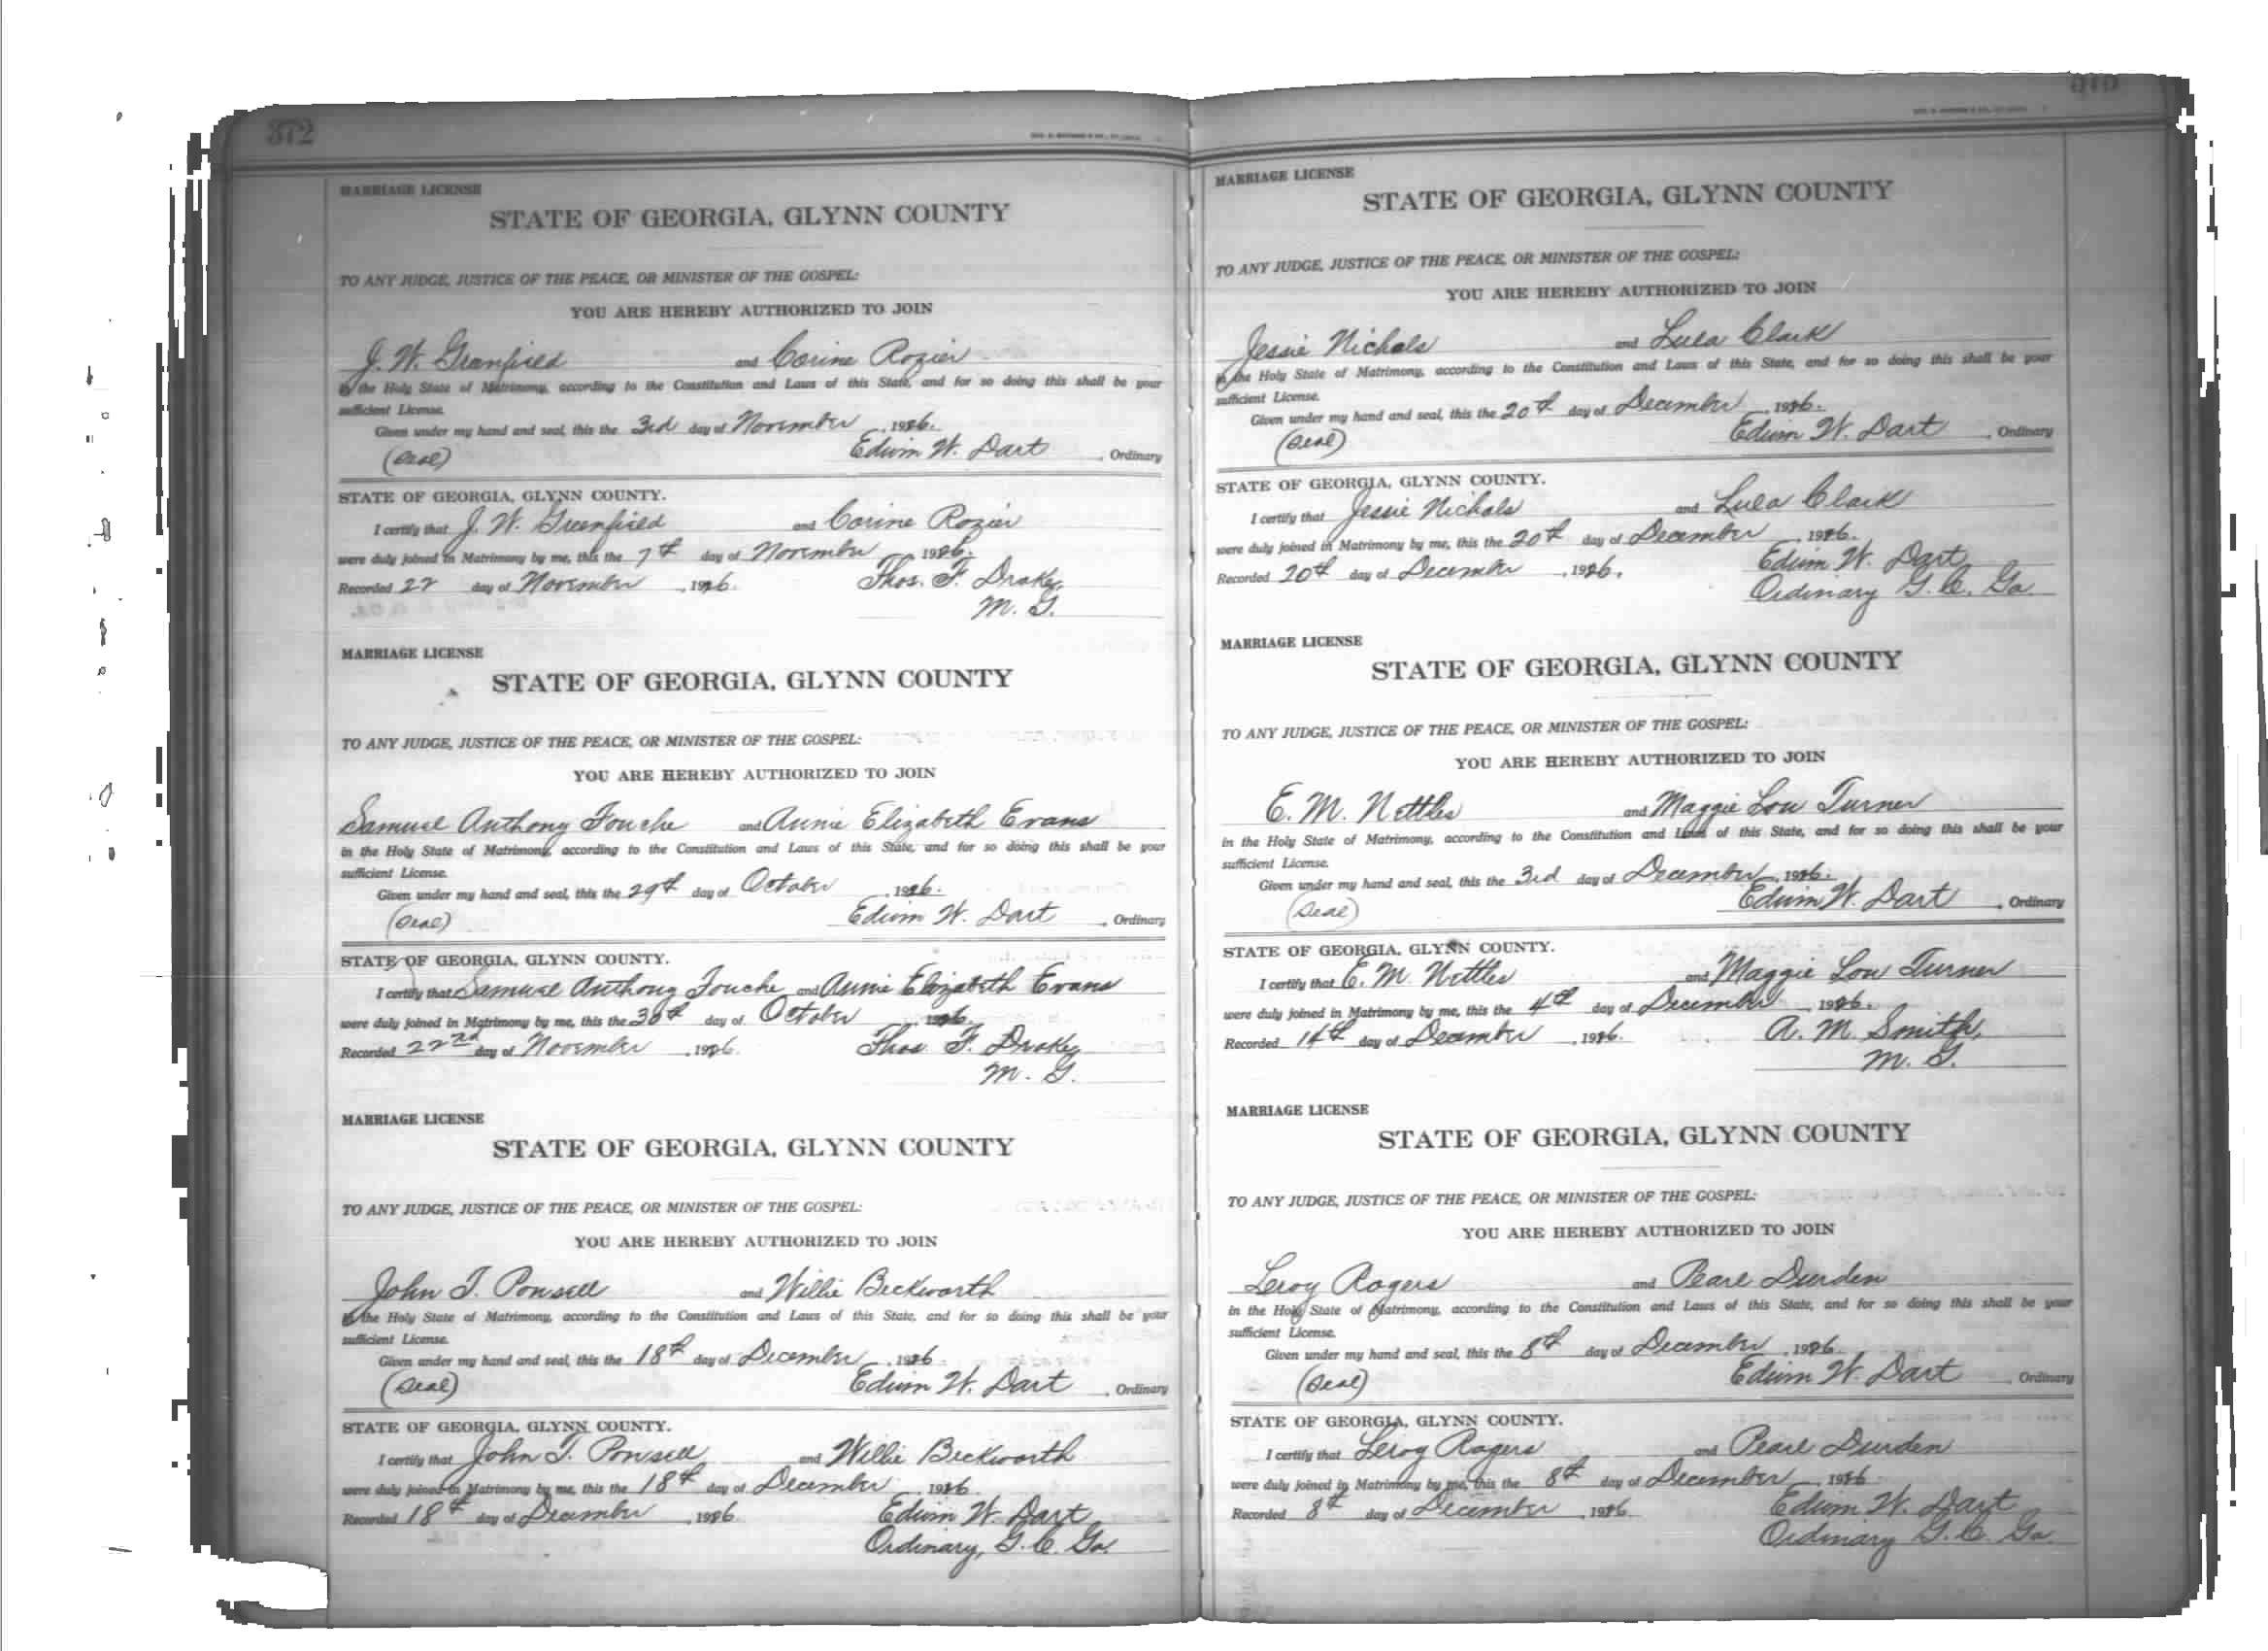 372
MARRIAGE LICENSE
STATE OF GEORGIA, GLYNN COUNTY
TO ANY JUDGE, JUSTICE OF THE PEACE, OR MINISTER OF THE GOSPEL:
YOU ARE HEREBY AUTHORIZED TO JOIN
J. W. Greenfield and Corine Rozier
in the Holy State of Matrimony, according to the Constitution and Laws of this State, and for so doing this shall be your
sufficient License.
Given under my hand and seal, this the 3rd day of November, 1926.
(Seal) Edwin W. Dart, Ordinary
STATE OF GEORGIA, GLYNN COUNTY.
I certify that J. W. Greenfield and Corine Rozier
were duly joined in Matrimony by me, this the 7th day of November, 1926.
Recorded 22 day of November, 1926. Thos. F. Drake,
M. G.
MARRIAGE LICENSE
STATE OF GEORGIA, GLYNN COUNTY
TO ANY JUDGE, JUSTICE OF THE PEACE, OR MINISTER OF THE GOSPEL:
YOU ARE HEREBY AUTHORIZED TO JOIN
Samuel Anthony Fouche and Annie Elizabeth Evans
in the Holy State of Matrimony, according to the Constitution and Laws of this State, and for so doing this shall be your
sufficient License.
Given under my hand and seal, this the 29th day of October, 1926.
(Seal) Edwin W. Dart, Ordinary
STATE OF GEORGIA, GLYNN COUNTY.
I certify that Samuel Anthony Fouche and Annie Elizabeth Evans
were duly joined in Matrimony by me, this the 30th day of October 1926.
Recorded 22nd day of November, 1926. Thos. F. Drake,
M. G.
MARRIAGE LICENSE
STATE OF GEORGIA, GLYNN COUNTY
TO ANY JUDGE, JUSTICE OF THE PEACE, OR MINISTER OF THE GOSPEL:
YOU ARE HEREBY AUTHORIZED TO JOIN
John T. Ponsell and Willie Beckworth
in the Holy State of Matrimony, according to the Constitution and Laws of this State, and for so doing this shall be your
sufficient License.
Given under my hand and seal, this the 18th day of December, 1926.
(Seal) Edwin W. Dart, Ordinary
STATE OF GEORGIA, GLYNN COUNTY.
I certify that John T. Ponsell and Willie Beckworth
were duly joined in Matrimony by me, this the 18th day of December, 1926.
Recorded 18th day of December, 1926. Edwin W. Dart
Ordinary, G. C. Ga.
MARRIAGE LICENSE
STATE OF GEORGIA, GLYNN COUNTY
TO ANY JUDGE, JUSTICE OF THE PEACE, OR MINISTER OF THE GOSPEL:
YOU ARE HEREBY AUTHORIZED TO JOIN
Jessie Nichols and Lula Clark
in the Holy State of Matrimony, according to the Constitution and Laws of this State, and for so doing this shall be your
sufficient License.
Given under my hand and seal, this the 20th day of December, 1926.
(Seal) Edwin W. Dart, Ordinary
STATE OF GEORGIA, GLYNN COUNTY.
I certify that Jessie Nichols and Lula Clark
were duly joined in Matrimony by me, this the 20th day of December, 1926.
Recorded 20th day of December, 1926. Edwin W. Dart,
Ordinary G. C. Ga.
MARRIAGE LICENSE
STATE OF GEORGIA, GLYNN COUNTY
TO ANY JUDGE, JUSTICE OF THE PEACE, OR MINISTER OF THE GOSPEL:
YOU ARE HEREBY AUTHORIZED TO JOIN
E. M. Nettles and Maggie Lou Turner
in the Holy State of Matrimony, according to the Constitution and Laws of this State, and for so doing this shall be your
sufficient License.
Given under my hand and seal, this the 3rd day of December, 1926.
(Seal) Edwin W. Dart, Ordinary
STATE OF GEORGIA, GLYNN COUNTY.
I certify that E. M. Nettles and Maggie Lou Turner
were duly joined in Matrimony by me, this the 4th day of December, 1926.
Recorded 14th day of December, 1926. A. M. Smith,
M. G.
MARRIAGE LICENSE
STATE OF GEORGIA, GLYNN COUNTY
TO ANY JUDGE, JUSTICE OF THE PEACE, OR MINISTER OF THE GOSPEL:
YOU ARE HEREBY AUTHORIZED TO JOIN
Leroy Rogers and Pearl Durden
in the Holy State of Matrimony, according to the Constitution and Laws of this State, and for so doing this shall be your
sufficient License.
Given under my hand and seal, this the 8th day of December, 1926.
(Seal) Edwin W. Dart, Ordinary
STATE OF GEORGIA, GLYNN COUNTY.
I certify that Leroy Rogers and Pearl Durden
were duly joined in Matrimony by me, this the 8th day of December, 1926.
Recorded 8th day of December, 1926. Edwin W. Dart
Ordinary G. C. Ga.